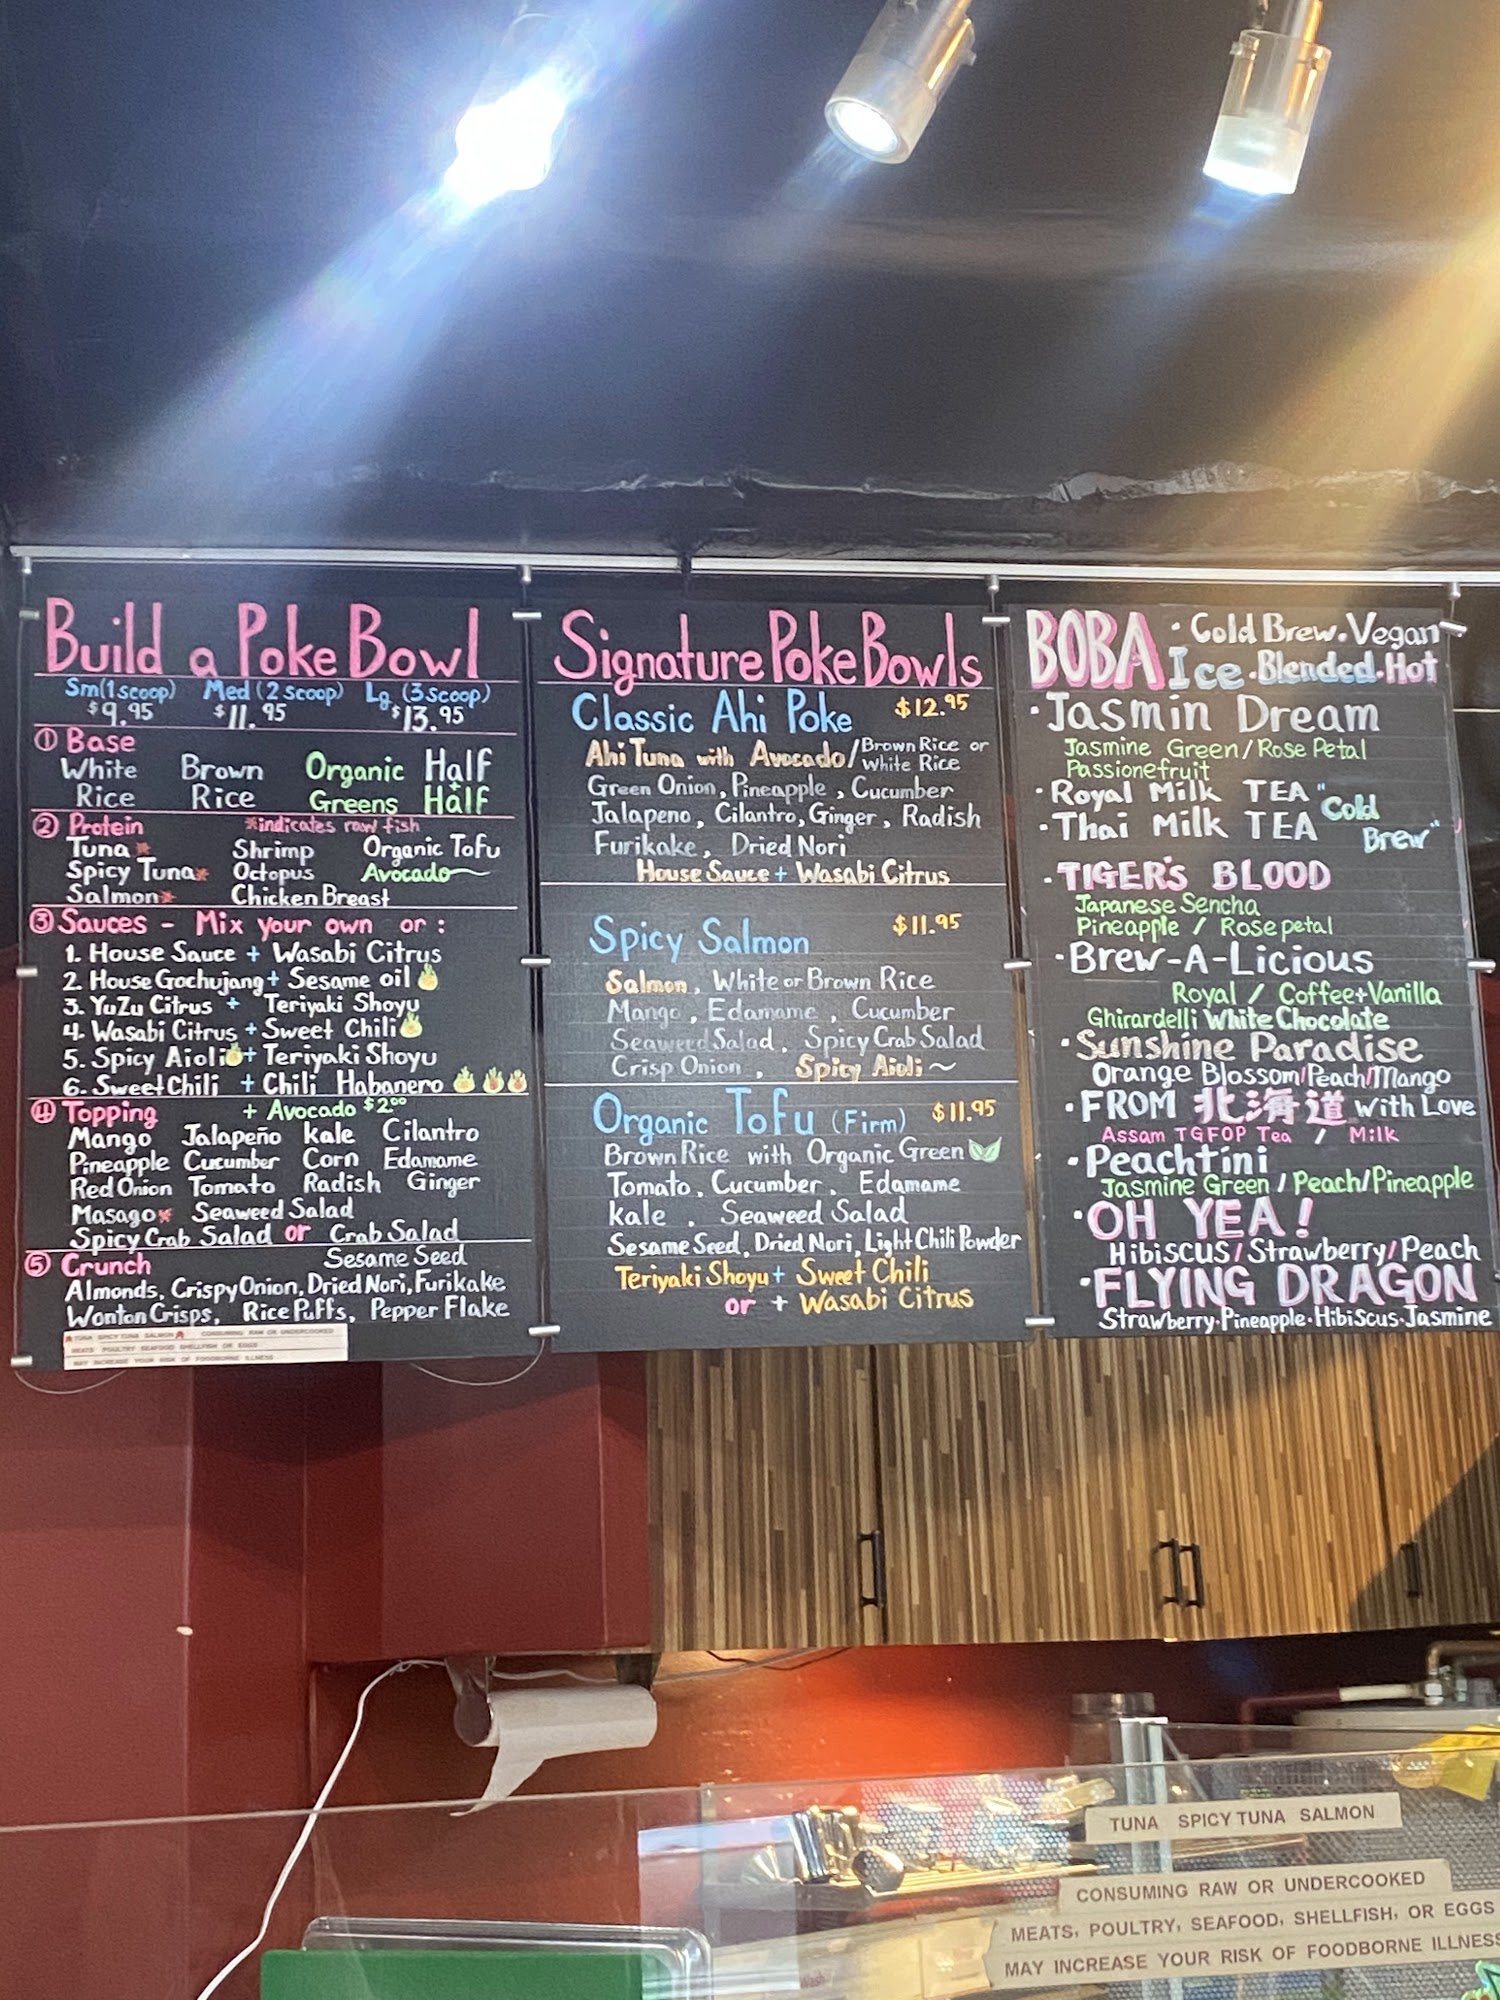 Build a Poke Bowl
Sm(1scoop) Med (2scoop) Lg (3scoop)
$9.95 $11.95 $13.95
① Base
White Brown Organic Half
Rice Rice Greens Half
② Protein *indicates raw fish
Tuna* Shrimp Organic Tofu
Spicy Tuna* Octopus Avocado
Salmon* Chicken Breast
③ Sauces - Mix your own or :
1. House Sauce + Wasabi Citrus
2. House Gochujang + Sesame oil
3. YuZu Citrus + Teriyaki Shoyu
4. Wasabi Citrus + Sweet Chili
5. Spicy Aioli + Teriyaki Shoyu
6. Sweet Chili + Chili Habanero
④ Topping + Avocado $2.00
Mango Jalapeño kale Cilantro
Pineapple Cucumber Corn Edamame
Red Onion Tomato Radish Ginger
Masago* Seaweed Salad
Spicy Crab Salad or Crab Salad
⑤ Crunch Sesame Seed
Almonds, Crispy Onion, Dried Nori, Furikake
Wonton Crisps, Rice Puffs, Pepper Flake
TUNA SPICY TUNA SALMON CONSUMING RAW OR UNDERCOOKED
MEATS POULTRY SEAFOOD SHELLFISH OR EGGS
MAY INCREASE YOUR RISK OF FOODBORNE ILLNESS
Signature Poke Bowls
Classic Ahi Poke $12.95
Ahi Tuna with Avocado/Brown Rice or
white Rice
Green Onion, Pineapple, Cucumber
Jalapeno, Cilantro, Ginger, Radish
Furikake, Dried Nori
House Sauce + Wasabi Citrus
Spicy Salmon $11.95
Salmon, White or Brown Rice
Mango, Edamame, Cucumber
Seaweed Salad, Spicy Crab Salad
Crisp Onion, Spicy Aioli~
Organic Tofu (Firm) $11.95
Brown Rice with Organic Green
Tomato, Cucumber, Edamame
kale, Seaweed Salad
Sesame Seed, Dried Nori, Light Chili Powder
Teriyaki Shoyu + Sweet Chili
or + Wasabi Citrus
BOBA · Cold Brew · Vegan
Ice · Blended · Hot
· Jasmin Dream
Jasmine Green / Rose Petal
Passionefruit
· Royal Milk TEA "Cold
· Thai Milk TEA Brew"
· TIGER'S BLOOD
Japanese Sencha
Pineapple / Rose petal
· Brew-A-Licious
Royal / Coffee+Vanilla
Ghirardelli White Chocolate
· Sunshine Paradise
Orange Blossom/Peach/Mango
· FROM 北海道 with Love
Assam TGFOP Tea / Milk
· Peachtini
Jasmine Green / Peach/Pineapple
· OH YEA!
Hibiscus/Strawberry/Peach
· FLYING DRAGON
Strawberry·Pineapple·Hibiscus·Jasmine
TUNA SPICY TUNA SALMON
CONSUMING RAW OR UNDERCOOKED
MEATS, POULTRY, SEAFOOD, SHELLFISH, OR EGGS
MAY INCREASE YOUR RISK OF FOODBORNE ILLNESS